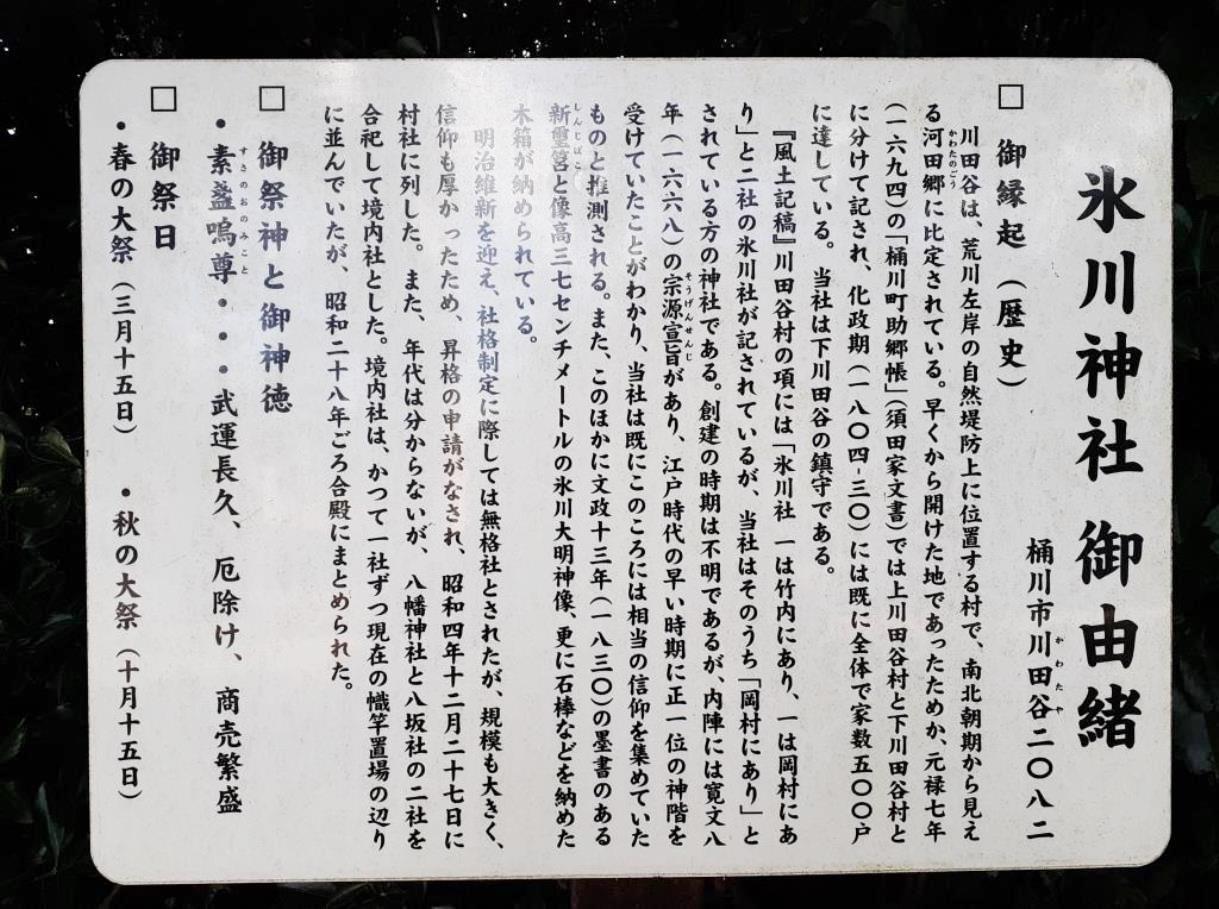 氷川神社 御由緒
桶川市川田谷二〇八二
かわたや
□ 御縁起（歴史）
川田谷は、荒川左岸の自然堤防上に位置する村で、南北朝期から見え
る河田郷に比定されている。早くから開けた地であったためか、元禄七年
かわたのごう
（一六九四）の「桶川町助郷帳」（須田家文書）では上川田谷村と下川田谷村と
に分けて記され、化政期（一八〇四-三〇）には既に全体で家数五〇〇戸
に達している。当社は下川田谷の鎮守である。
『風土記稿』川田谷村の項には「氷川社 一は竹内にあり、一は岡村にあ
り」と二社の氷川社が記されているが、当社はそのうち「岡村にあり」と
されている方の神社である。創建の時期は不明であるが、内陣には寛文八
年（一六六八）の宗源宣旨があり、江戸時代の早い時期に正一位の神階を
そうげんせんじ
受けていたことがわかり、当社は既にこのころには相当の信仰を集めていた
ものと推測される。また、このほかに文政十三年（一八三〇）の墨書のある
新璽筥と像高三七センチメートルの氷川大明神像、更に石棒などを納めた
しんじばこ
木箱が納められている。
明治維新を迎え、社格制定に際しては無格社とされたが、規模も大きく、
信仰も厚かったため、昇格の申請がなされ、昭和四年十二月二十七日に
村社に列した。また、年代は分からないが、八幡神社と八坂社の二社を
合祀して境内社とした。境内社は、かつて一社ずつ現在の幟竿置場の辺り
に並んでいたが、昭和二十八年ごろ合殿にまとめられた。
□ 御祭神と御神徳
・素盞嗚尊・・・武運長久、厄除け、商売繁盛
すさのおのみこと
□ 御祭日
・春の大祭（三月十五日） ・秋の大祭（十月十五日）